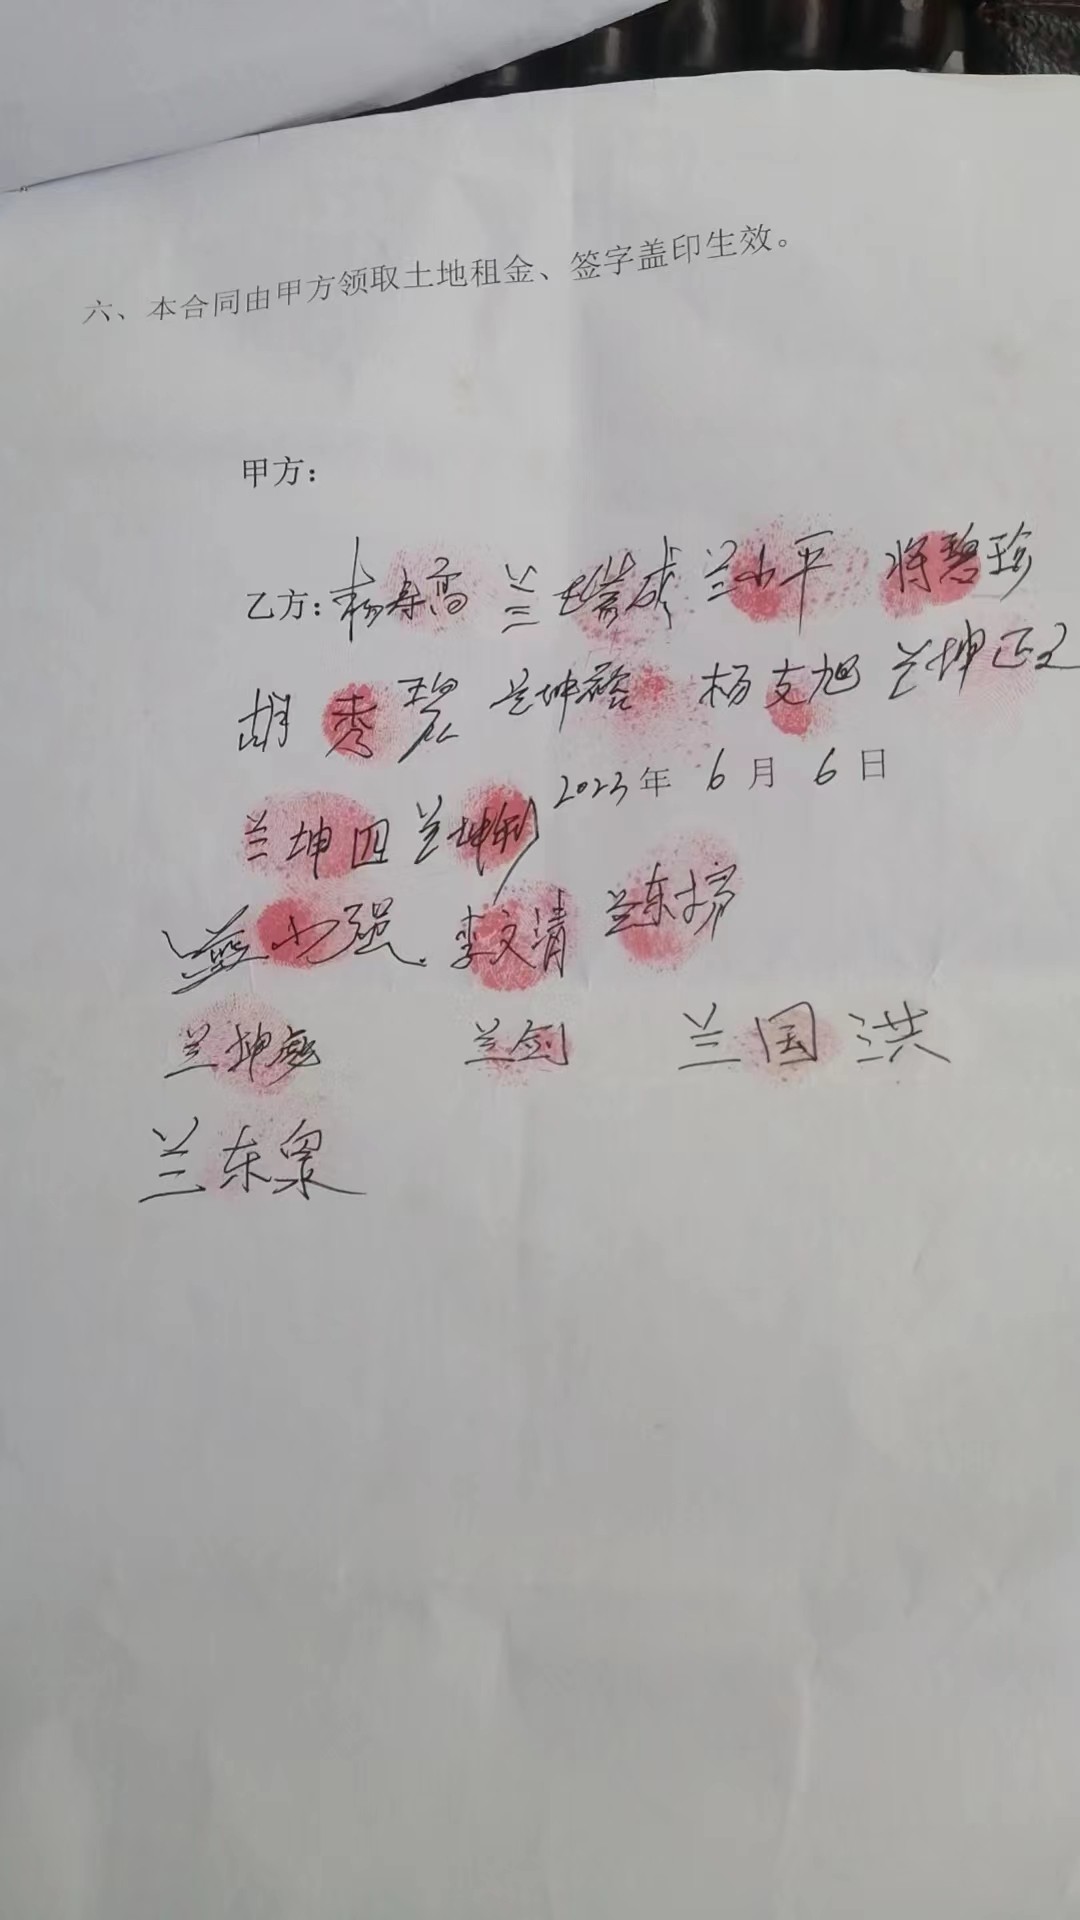 六、本合同由甲方领取土地租金、签字盖印生效。
甲方：
乙方：杨寿高 兰瑞成 兰小平 将碧珍
胡秀碧 兰坤裕 杨支旭 兰坤正
2023年 6月 6日
兰坤四 兰坤
兰小强 李文清 兰东
兰坤 兰剑 兰国洪
兰东泉